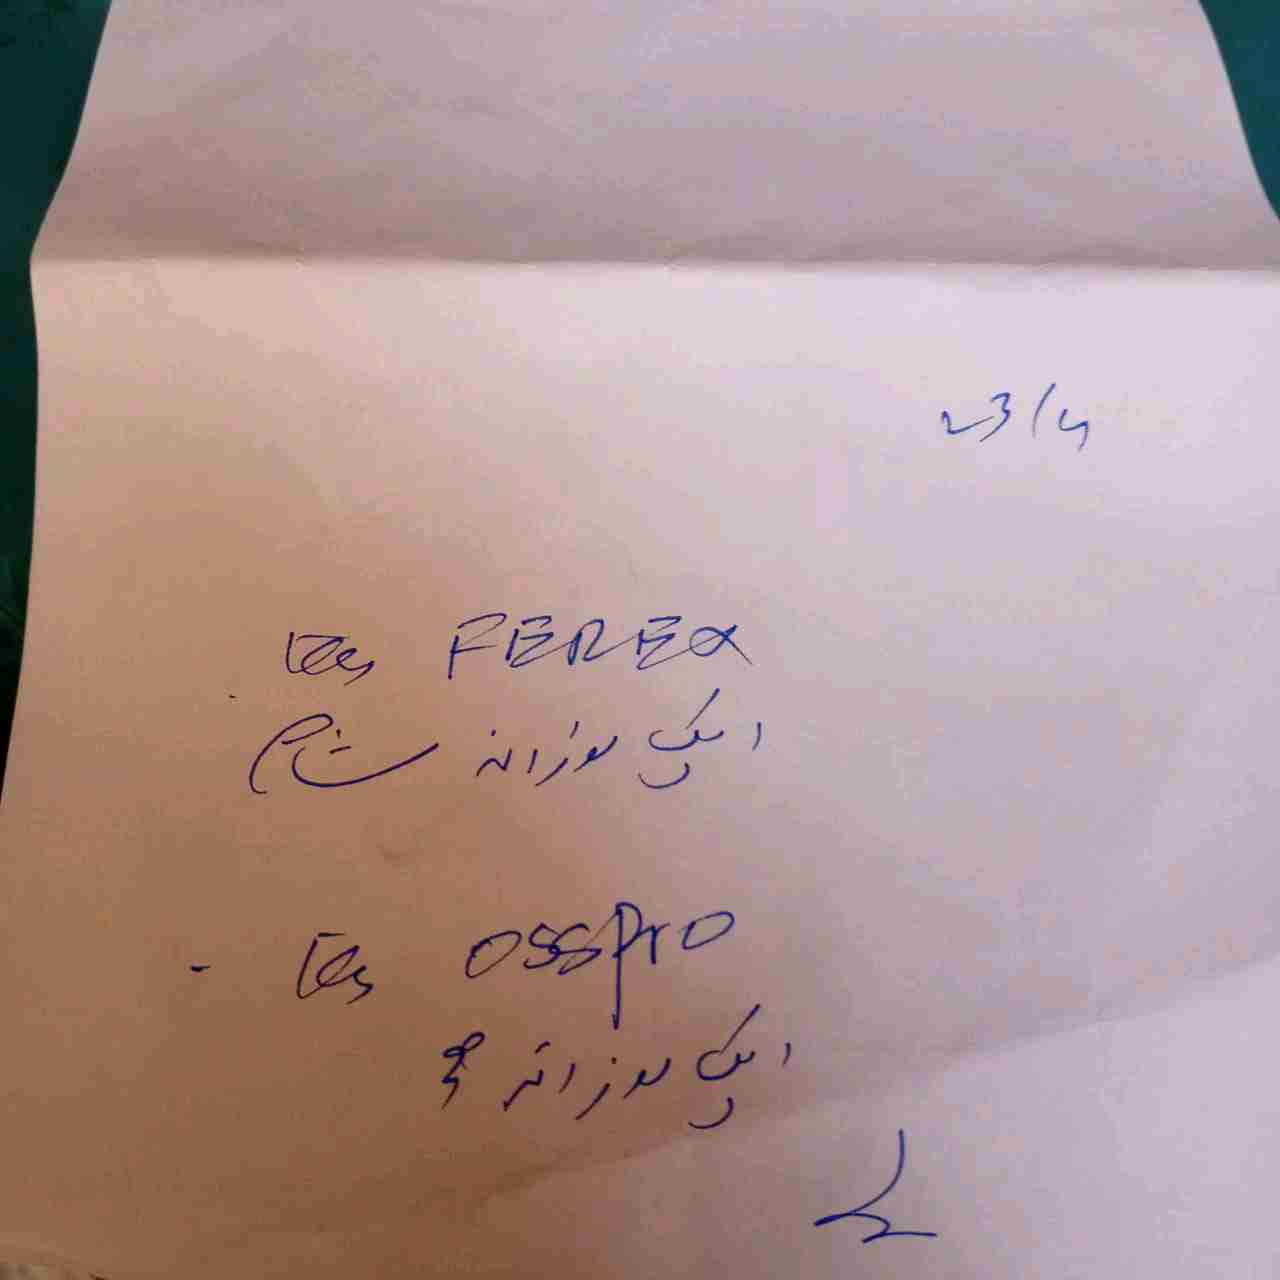 23/4
Tab FEREX
ایک روزانہ شام
Tab OSSPro
ایک روزانہ صبح